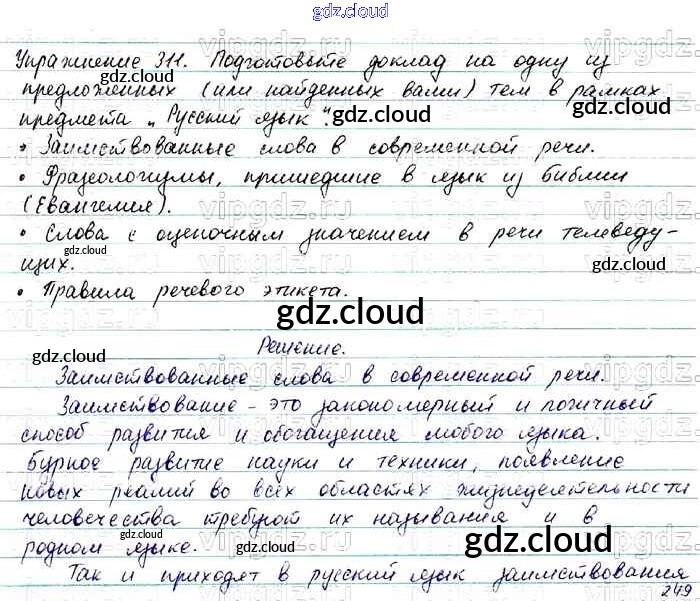 gdz.cloud
gdz.cloud
Упражнение 311. Подготовьте доклад на одну из
gdz.cloud
предложенных (или найденных вами) тем в рамках
gdz.cloud
предмета „Русский язык".
gdz.cloud
• Заимствованные слова в современной речи.
• Фразеологизмы, пришедшие в язык из Библии
(Евангелия).
gdz.cloud
• Слова с оценочным значением в речи телеведу-
щих.
gdz.cloud
• Правила речевого этикета.
gdz.cloud
Решение.
gdz.cloud
Заимствованные слова в современной речи.
Заимствование - это закономерный и логичный
способ развития и обогащения любого языка.
Бурное развитие науки и техники, появление
новых реалий во всех областях жизнедеятельности
человечества требуют их называния и в
gdz.cloud
родном языке.
gdz.cloud
Так и приходят в русский язык заимствования
249